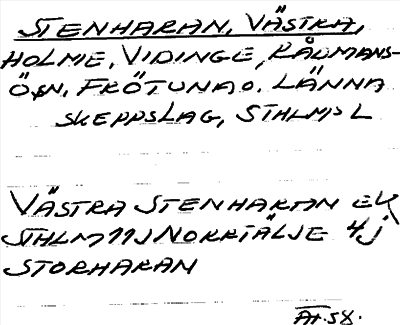 STENHARAN, VÄSTRA,
HOLME, VIDINGE, RÅDMANS-
ÖSN, FRÖTUNA O. LÄNNA
SKEPPSLAG, STHLMS L
VÄSTRA STENHARAN EK
STHLM 11J NORRTÄLJE 4j
STORHARAN